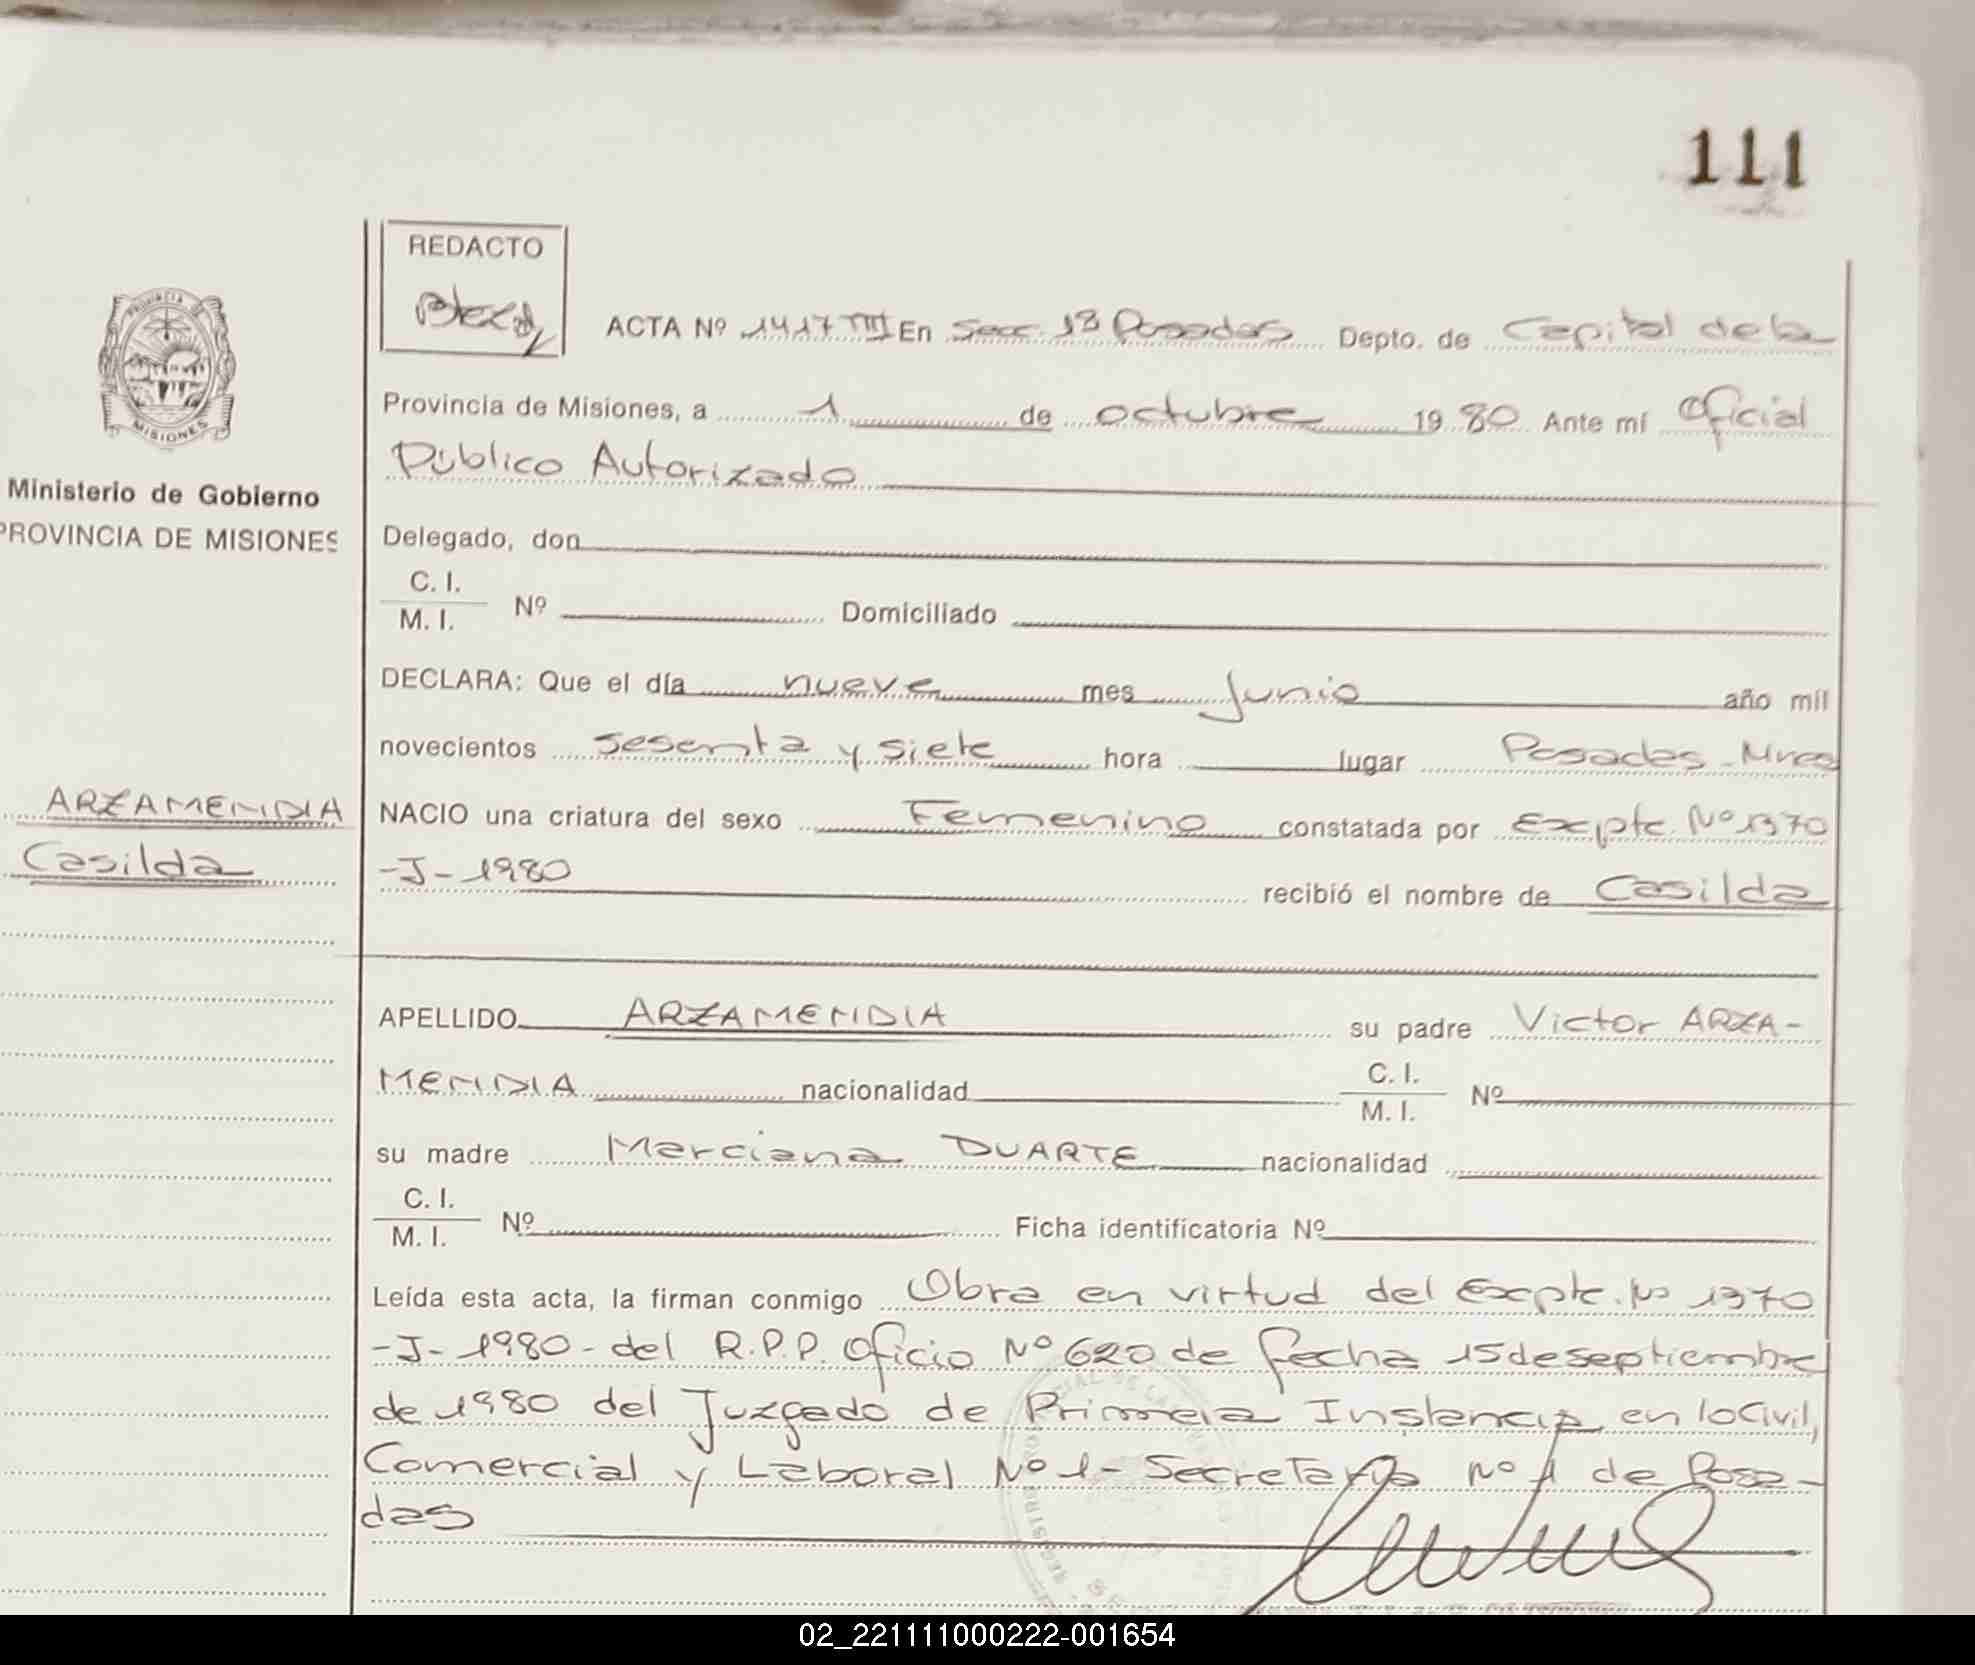 111
REDACTO
ACTA Nº 1417 TIII En Secc. 1ª Posadas Depto. de Capital de la
Provincia de Misiones, a 1 de octubre 1980 Ante mí Oficial
Público Autorizado
PROVINCIA DE
MISIONES
Ministerio de Gobierno
PROVINCIA DE MISIONES
Delegado, don
C. I.
M. I. Nº Domiciliado
DECLARA: Que el día nueve mes junio año mil
novecientos sesenta y siete hora lugar Posadas - Mnes
ARZAMENDIA
Casilda
NACIO una criatura del sexo Femenino constatada por Expte. Nº 1370
-J- 1980 recibió el nombre de Casilda
APELLIDO ARZAMENDIA su padre Victor ARZA-
MENDIA nacionalidad C. I.
M. I. Nº
su madre Marciana DUARTE nacionalidad
C. I.
M. I. Nº Ficha identificatoria Nº
Leída esta acta, la firman conmigo Obra en virtud del Expte. Nº 1370
-J- 1980 - del R.P.P. Oficio Nº 620 de fecha 15 de septiembre
de 1980 del Juzgado de Primera Instancia en lo Civil,
Comercial y Laboral Nº 1 - Secretaría Nº 1 de Posa-
das
02_221111000222-001654